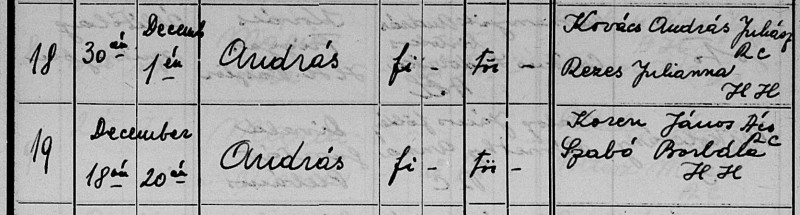 18 30 án Decemb 1 én András fi - tör - Kovács András Juliász
RC
Rezes Julianna
HH
19 December 18 án 20 án András fi - tör - Koren János
RC
Szabó Borbála
HH